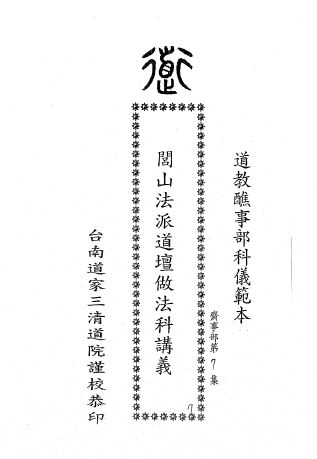 道
道教醮事部科儀範本
齋事部第7集
閭山法派道壇做法科講義
7
台南道家三清道院謹校恭印